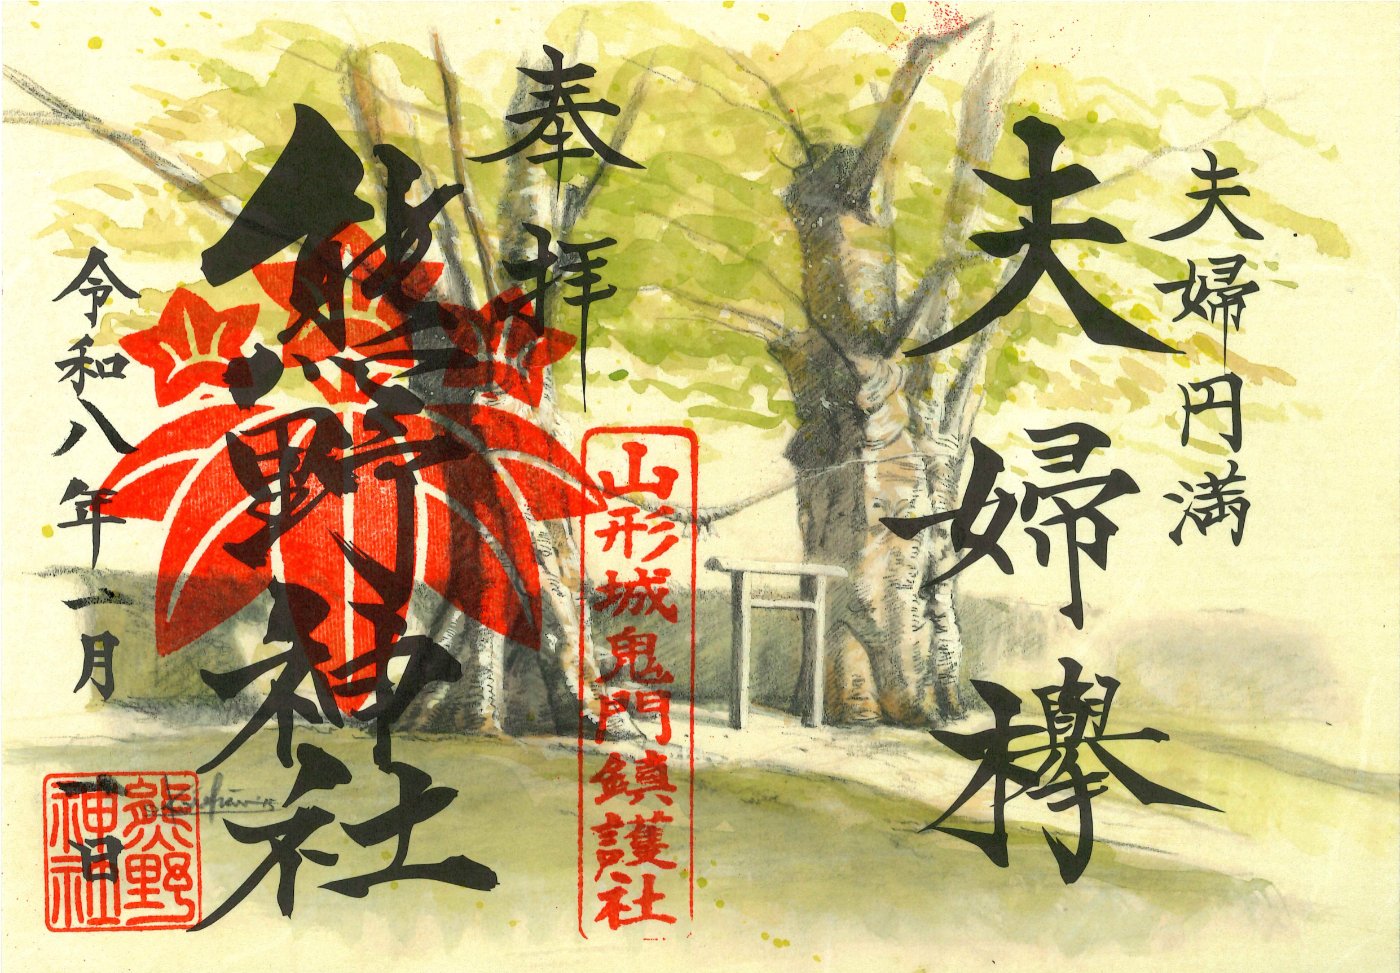 夫婦円満
夫婦欅
奉拝
山形城鬼門鎮護社
熊野神社
令和八年一月
一日
熊野
神社